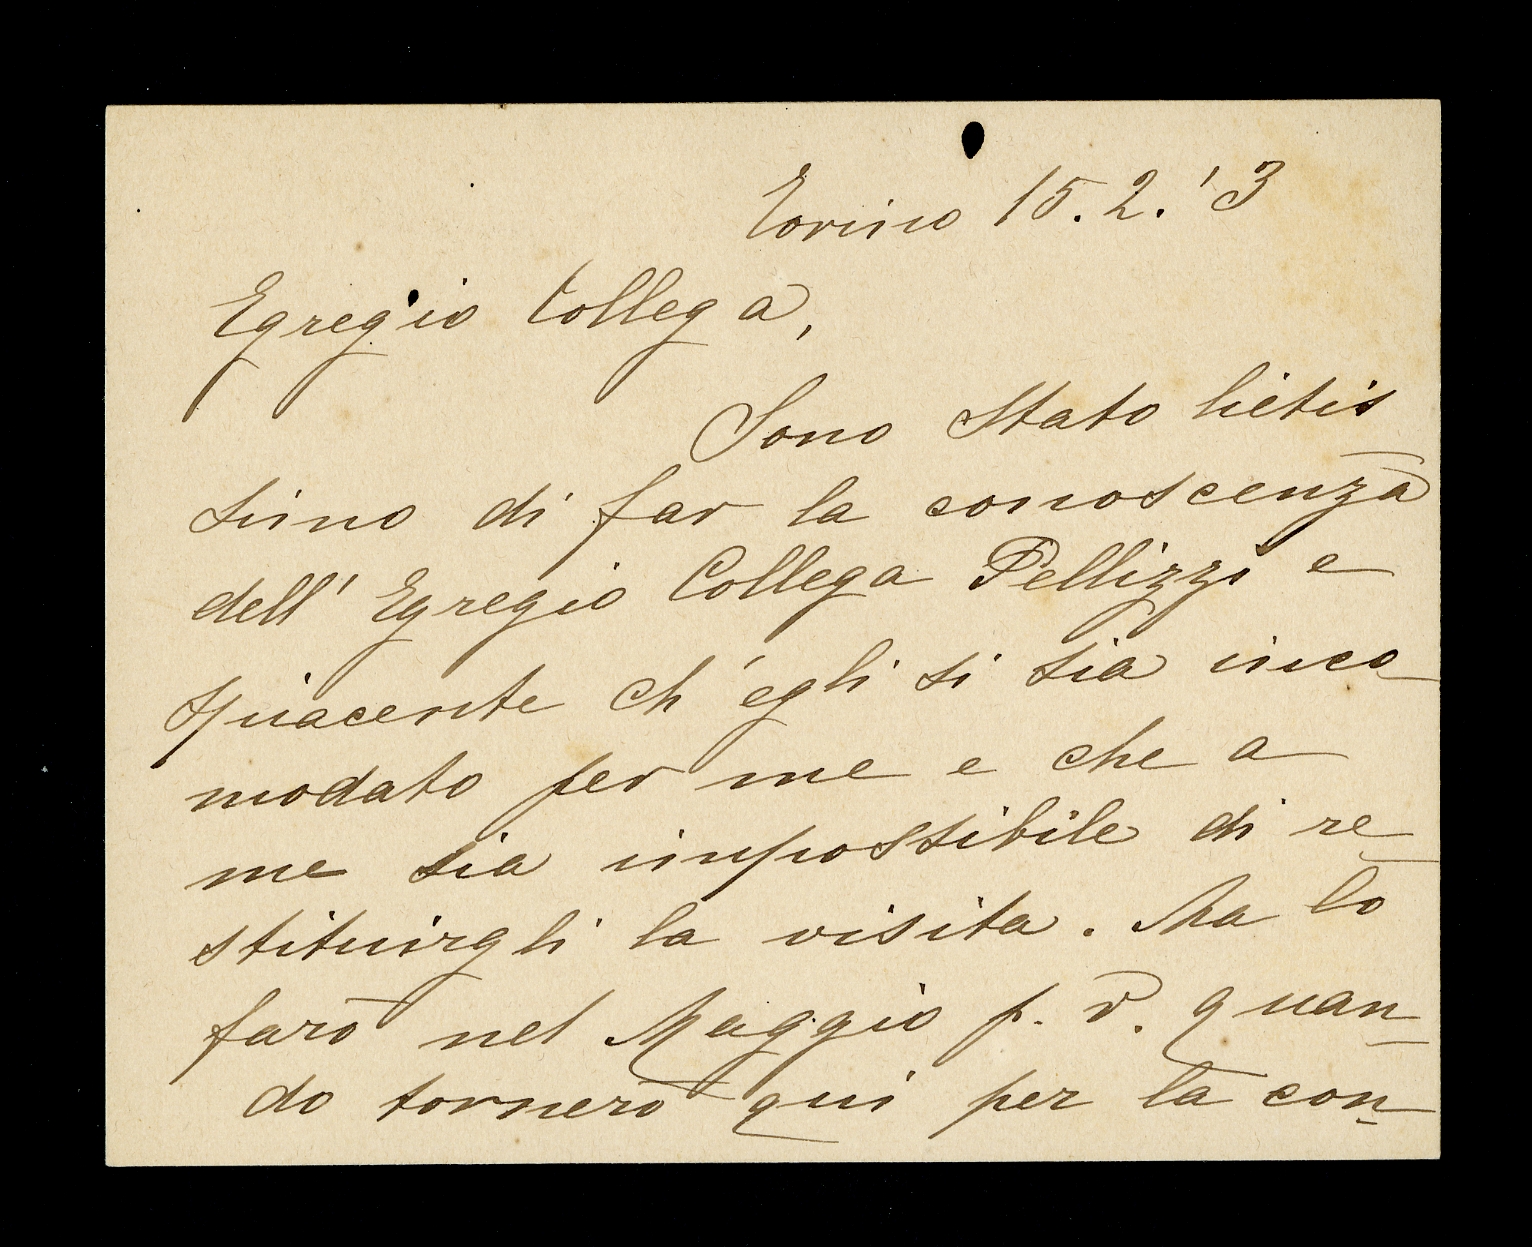 Torino 15.2.'3
Egregio Collega,
Sono stato lietis
simo di far la conoscenza
dell' Egregio Collega Pellizzi e
spiacente ch'egli si sia inco-
modato per me e che a
me sia impossibile di re-
stituirgli la visita. Ma lo
farò nel Maggio p. v. quan-
do tornerò qui per la con-